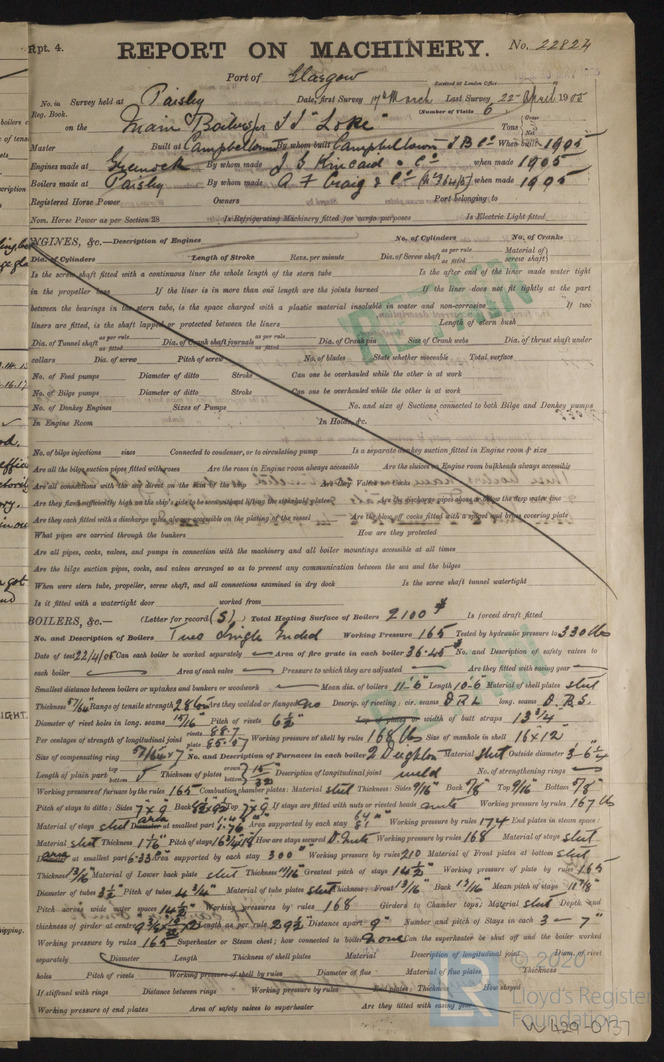 Rpt. 4.
REPORT ON MACHINERY. No. 22824
Port of Glasgow
Received at London Office
No. in Reg. Book. Survey held at Paisley Date, first Survey 17th March Last Survey 22nd April 1905
(Number of Visits 6)
on the Main Boilers for SS "Loke" Tons Gross Net
Master Built at Campbeltown By whom built Campbeltown S B Co When built 1905
Engines made at Greenock By whom made J G Kincaid & Co when made 1905
Boilers made at Paisley By whom made A F Craig & Co when made 1905
Registered Horse Power Owners Port belonging to
Nom. Horse Power as per Section 28 Is Refrigerating Machinery fitted for cargo purposes Is Electric Light fitted
ENGINES, &c.—Description of Engines No. of Cylinders No. of Cranks
Dia. of Cylinders Length of Stroke Revs. per minute Dia. of Screw shaft as per rule as fitted Material of screw shaft
Is the screw shaft fitted with a continuous liner the whole length of the stern tube Is the after end of the liner made water tight
in the propeller boss If the liner is in more than one length are the joints burned If the liner does not fit tightly at the part
between the bearings in the stern tube, is the space charged with a plastic material insoluble in water and non-corrosive If two
liners are fitted, is the shaft lapped or protected between the liners Length of stern bush
Dia. of Tunnel shaft as per rule as fitted Dia. of Crank shaft journals as per rule as fitted Dia. of Crank pin Size of Crank webs Dia. of thrust shaft under
collars Dia. of screw Pitch of screw No. of blades State whether moveable Total surface
No. of Feed pumps Diameter of ditto Stroke Can one be overhauled while the other is at work
No. of Bilge pumps Diameter of ditto Stroke Can one be overhauled while the other is at work
No. of Donkey Engines Sizes of Pumps No. and size of Suctions connected to both Bilge and Donkey pumps
In Engine Room In Holds, &c.
No. of bilge injections sizes Connected to condenser, or to circulating pump Is a separate donkey suction fitted in Engine room & size
Are all the bilge suction pipes fitted with roses Are the roses in Engine room always accessible Are the sluices on Engine room bulkheads always accessible
Are all connections with the sea direct on the skin of the ship Are they Valves or Cocks
Are they fixed sufficiently high on the ship's side to be seen without lifting the stokehold plates Are the discharge pipes above or below the deep water line
Are they each fitted with a discharge valve always accessible on the plating of the vessel Are the blow off cocks fitted with a spigot and brass covering plate
What pipes are carried through the bunkers How are they protected
Are all pipes, cocks, valves, and pumps in connection with the machinery and all boiler mountings accessible at all times
Are the bilge suction pipes, cocks, and valves arranged so as to prevent any communication between the sea and the bilges
When were stern tube, propeller, screw shaft, and all connections examined in dry dock Is the screw shaft tunnel watertight
Is it fitted with a watertight door worked from
BOILERS, &c.— (Letter for record (S)) Total Heating Surface of Boilers 2100 Is forced draft fitted
No. and Description of Boilers Two Single Ended Working Pressure 165 Tested by hydraulic pressure to 330 lbs
Date of test 22/4/05 Can each boiler be worked separately Area of fire grate in each boiler 36.45 No. and Description of safety valves to
each boiler Area of each valve Pressure to which they are adjusted Are they fitted with easing gear
Smallest distance between boilers or uptakes and bunkers or woodwork Mean dia. of boilers 11'-6" Length 10-6 Material of shell plates steel
Thickness Range of tensile strength Are they welded or flanged no Descrip. of riveting: cir. seams D.R.L long. seams
Diameter of rivet holes in long. seams 15/16" Pitch of rivets 6 1/2" width of butt straps 13 3/4"
Per centages of strength of longitudinal joint rivets 88.7 plate 85.57 Working pressure of shell by rules 168 lbs Size of manhole in shell 16 x 12"
Size of compensating ring No. and Description of Furnaces in each boiler 2 Deighton Material steel Outside diameter
Length of plain part top bottom Thickness of plates crown bottom 15/32 Description of longitudinal joint weld No. of strengthening rings
Working pressure of furnace by the rules 165 Combustion chamber plates: Material steel Thickness: Sides 9/16" Back 5/8" Top 9/16" Bottom 5/8"
Pitch of stays to ditto: Sides 7 x 9 Back Top 7 x 9 If stays are fitted with nuts or riveted heads nuts Working pressure by rules 167 lb
Material of stays steel area at smallest part 1.76 Area supported by each stay Working pressure by rules 174 End plates in steam space:
Material steel Thickness Pitch of stays How are stays secured D. Nuts Working pressure by rules 168 Material of stays steel
area at smallest part 6.33 Area supported by each stay 300 Working pressure by rules 210 Material of Front plates at bottom steel
Thickness 13/16" Material of Lower back plate steel Thickness Greatest pitch of stays 14 1/2" Working pressure of plate by rules 165
Diameter of tubes 3 1/2" Pitch of tubes 4 3/4" Material of tube plates steel Thickness: Front 13/16" Back 13/16" Mean pitch of stays
Pitch across wide water spaces 14 1/2" Working pressures by rules 168 Girders to Chamber tops: Material steel Depth and
thickness of girder at centre Length as per rule 29 1/2" Distance apart 9" Number and pitch of Stays in each 3 - 7"
Working pressure by rules 165 Superheater or Steam chest; how connected to boiler none Can the superheater be shut off and the boiler worked
separately Diameter Length Thickness of shell plates Material Description of longitudinal joint Diam. of rivet
holes Pitch of rivets Working pressure of shell by rules Diameter of flue Material of flue plates Thickness
If stiffened with rings Distance between rings Working pressure by rules End plates: Thickness How stayed
Working pressure of end plates Area of safety valves to superheater Are they fitted with easing gear
RETAIN
© 2020
Lloyd's Register
Foundation
W429-0137